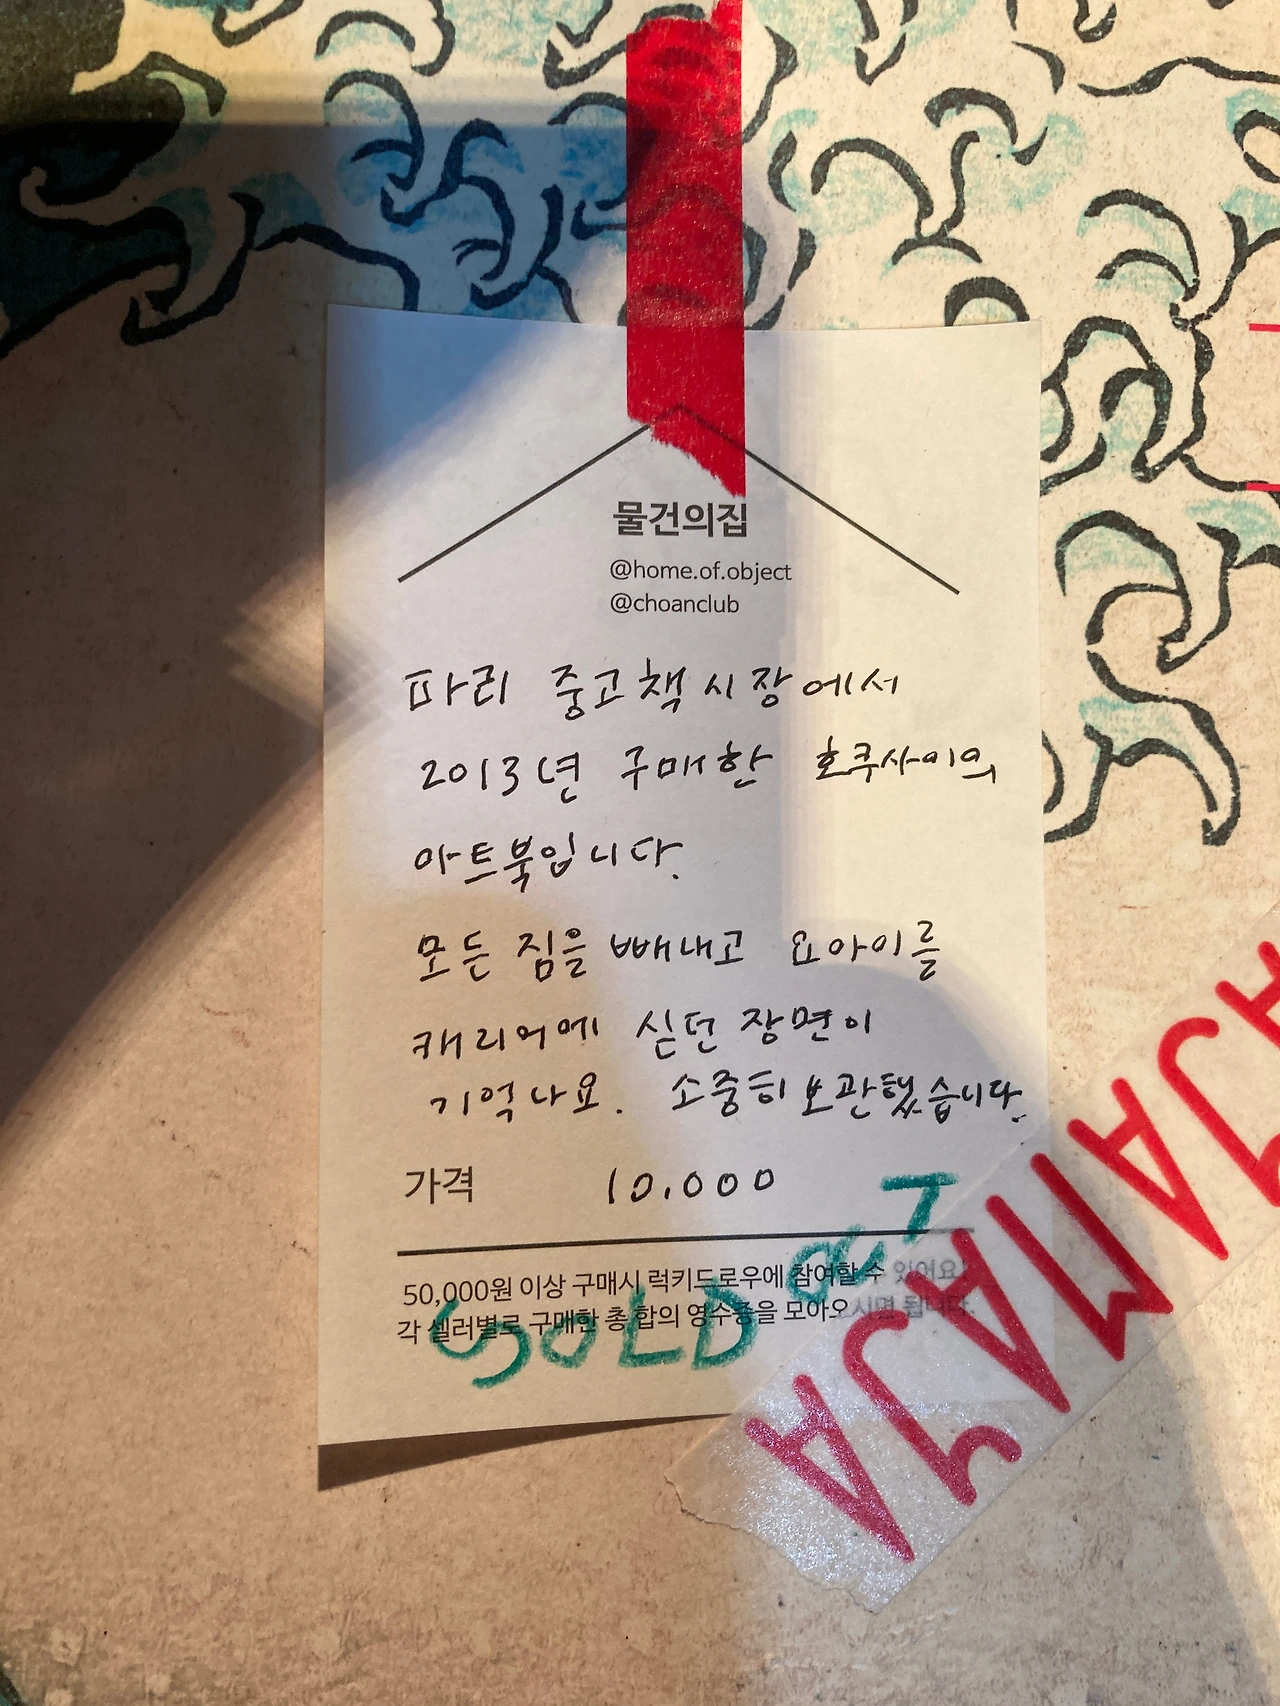 물건의집
@home.of.object
@choanclub
파리 중고책시장에서
2013년 구매한 호쿠사이의
아트북입니다.
모든 짐을 빼내고 요아이를
캐리어에 싣던 장면이
기억나요. 소중히 보관했습니다.
가격 10.000
50,000원 이상 구매시 럭키드로우에 참여할 수 있어요
각 셀러별로 구매한 총 합의 영수증을 모아오시면 됩니다.
SOLD OUT
MAJA
AJA